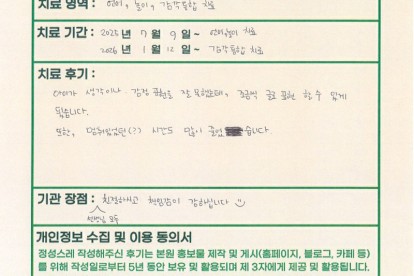 치료 영역 : 언어, 놀이, 감각통합 치료
치료 기간 : 2025년 7월 9일 ~ 언어,놀이 치료
2026년 1월 12일 ~ 감각통합 치료
치료 후기 :
아이가 생각이나 감정 표현을 잘 못했는데, 조금씩 글로 표현 할 수 있게
됐습니다.
또한, 멈춰있었던(??) 시간도 많이 줄었습니다.
기관 장점 : 친절하시고 책임감이 강하십니다
선생님 모두
개인정보 수집 및 이용 동의서
정성스레 작성해주신 후기는 본원 홍보물 제작 및 게시(홈페이지, 블로그, 카페 등)
를 위해 작성일로부터 5년 동안 보유 및 활용되며 제 3자에게 제공 및 활용됩니다.